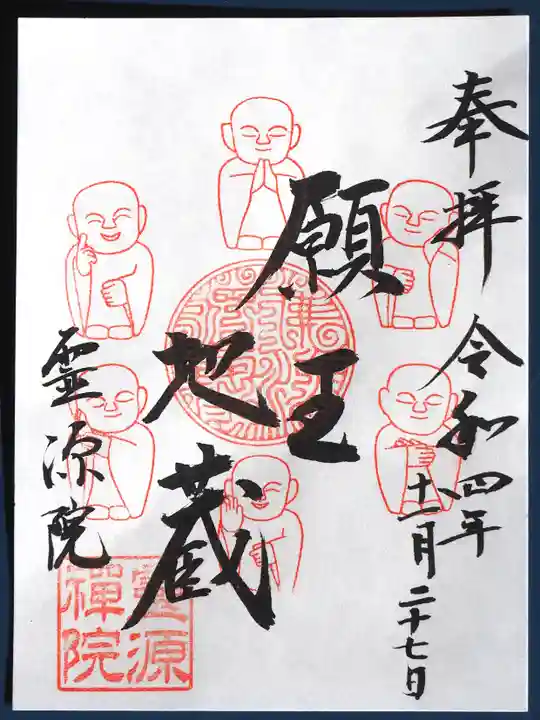 奉拝 令和四年
十一月二十七日
願王
地蔵
霊源院
霊源
禅院